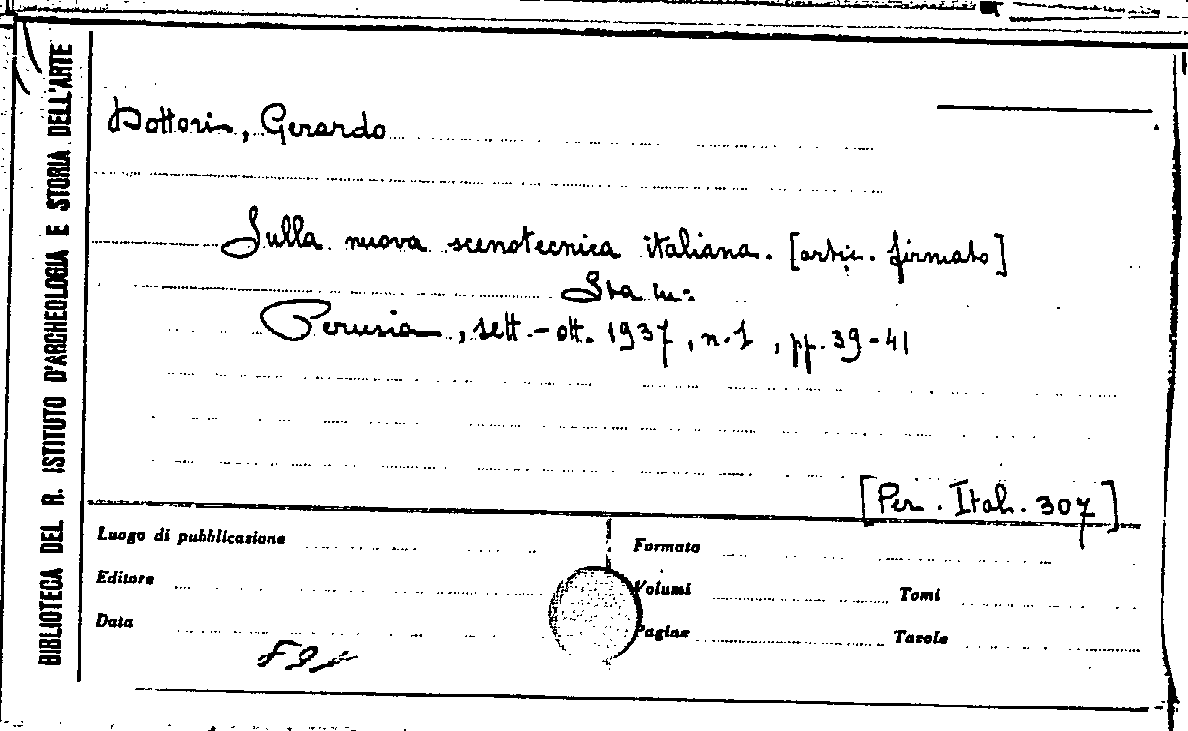 BIBLIOTECA DEL R. ISTITUTO D'ARCHEOLOGIA E STORIA DELL'ARTE
Dottori, Gerardo
Sulla nuova scenotecnica italiana. [artic. firmato]
Sta in:
Perusia, sett.-ott. 1937, n.1, pp. 39-41
[Per. Ital. 307]
Luogo di pubblicazione
Formato
Editore
Volumi
Tomi
Data
Pagine
Tavole